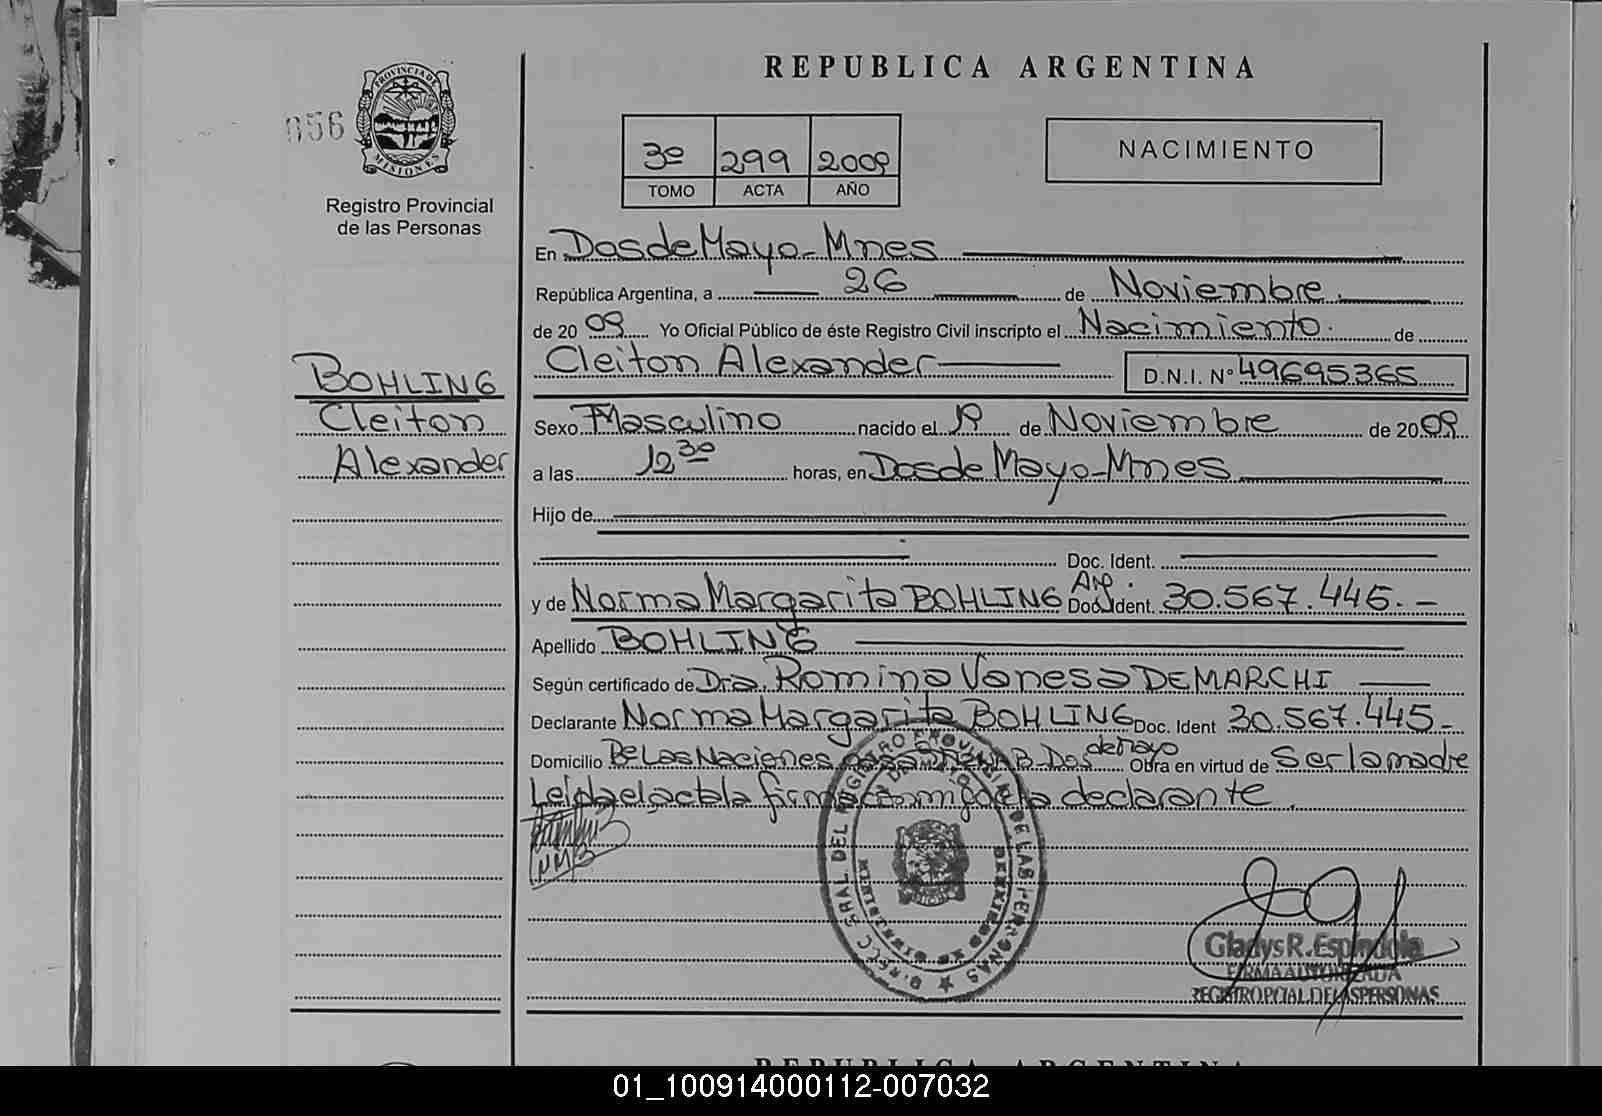 REPUBLICA ARGENTINA
056
PROVINCIA DE MISIONES
Registro Provincial
de las Personas
3º 299 2009
TOMO ACTA AÑO
NACIMIENTO
En Dos de Mayo - Mnes
República Argentina, a 26 de Noviembre
de 20 09 Yo Oficial Público de éste Registro Civil inscripto el Nacimiento. de
Cleiton Alexander D.N.I. Nº 49695365
BOHLING
Cleiton
Alexander
Sexo Masculino nacido el 19 de Noviembre de 20 09
a las 12 30 horas, en Dos de Mayo - Mnes
Hijo de
Doc. Ident.
y de Norma Margarita BOHLING Arg. Doc. Ident. 30.567.445. -
Apellido BOHLING
Según certificado de Dra. Romina Vanesa DEMARCHI
Declarante Norma Margarita BOHLING Doc. Ident 30.567.445 -
Domicilio De Las Naciones B - Dos de Mayo Obra en virtud de Ser la madre
Leída el acta la firma conmigo la declarante.
DIREC. GRAL. DEL REGISTRO PROVINCIAL DE LAS PERSONAS
Gladys R. Espindola
FIRMA AUTORIZADA
REGISTRO PCIAL. DE LAS PERSONAS
REPUBLICA ARGENTINA
01_100914000112-007032